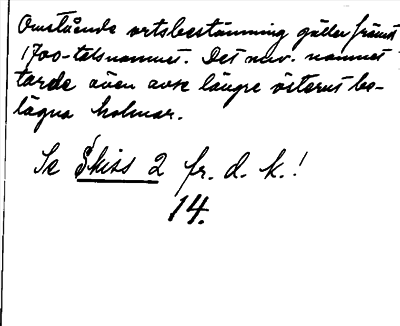 Omstående ortsbestämning gäller främst
1700-talsnamnet. Det nuv. namnet
torde även avse längre österut be-
lägna holmar.
Se Skiss 2 fr. d. k.!
14.